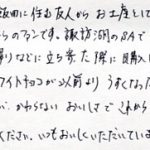 飯田に住む友人から お土産として
らのファンです。諏訪湖のSAで
帰りなどに立ち寄った際に購入し
ワイトチョコが以前より うすくなった
が、かわらない おいしさで これから
ください。いつもおいしくいただいていま